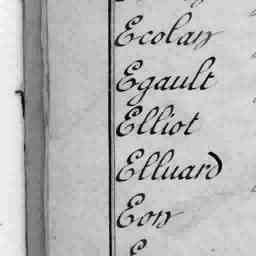 Ecolan
Egault
Elliot
Elluard
Eon